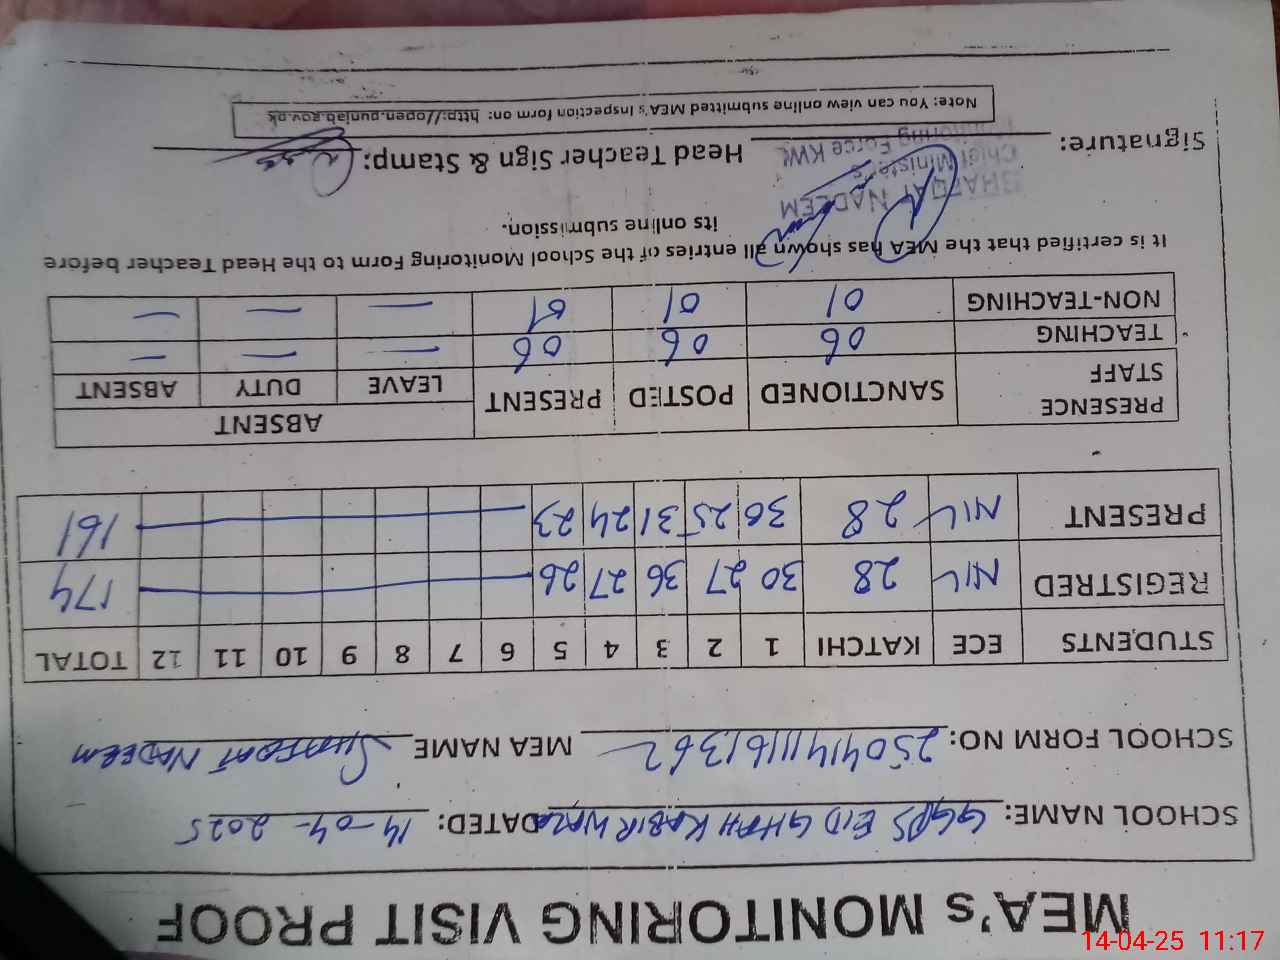 MEA's MONITORING VISIT PROOF
SCHOOL NAME: GGPS EID GHAH KABIR WALA DATED: 14-04-2025
SCHOOL FORM NO: MEA NAME SHAFQAT NADEEM
STUDENTS ECE KATCHI 1 2 3 4 5 6 7 8 9 10 11 12 TOTAL
REGISTRED NIL 28 30 27 36 27 26 174
PRESENT NIL 28 30 25 31 24 23 161
PRESENCE STAFF SANCTIONED POSTED PRESENT ABSENT
LEAVE DUTY ABSENT
TEACHING 06 06 06 — — —
NON-TEACHING 01 01 01 — — —
It is certified that the MEA has shown all entries of the School Monitoring Form to the Head Teacher before
its online submission.
SHAFQAT NADEEM
Chief Minister's
Monitoring Force KWL
Signature: Head Teacher Sign & Stamp:
Note: You can view online submitted MEA's Inspection form on: http://open.punjab.gov.pk
14-04-25 11:17